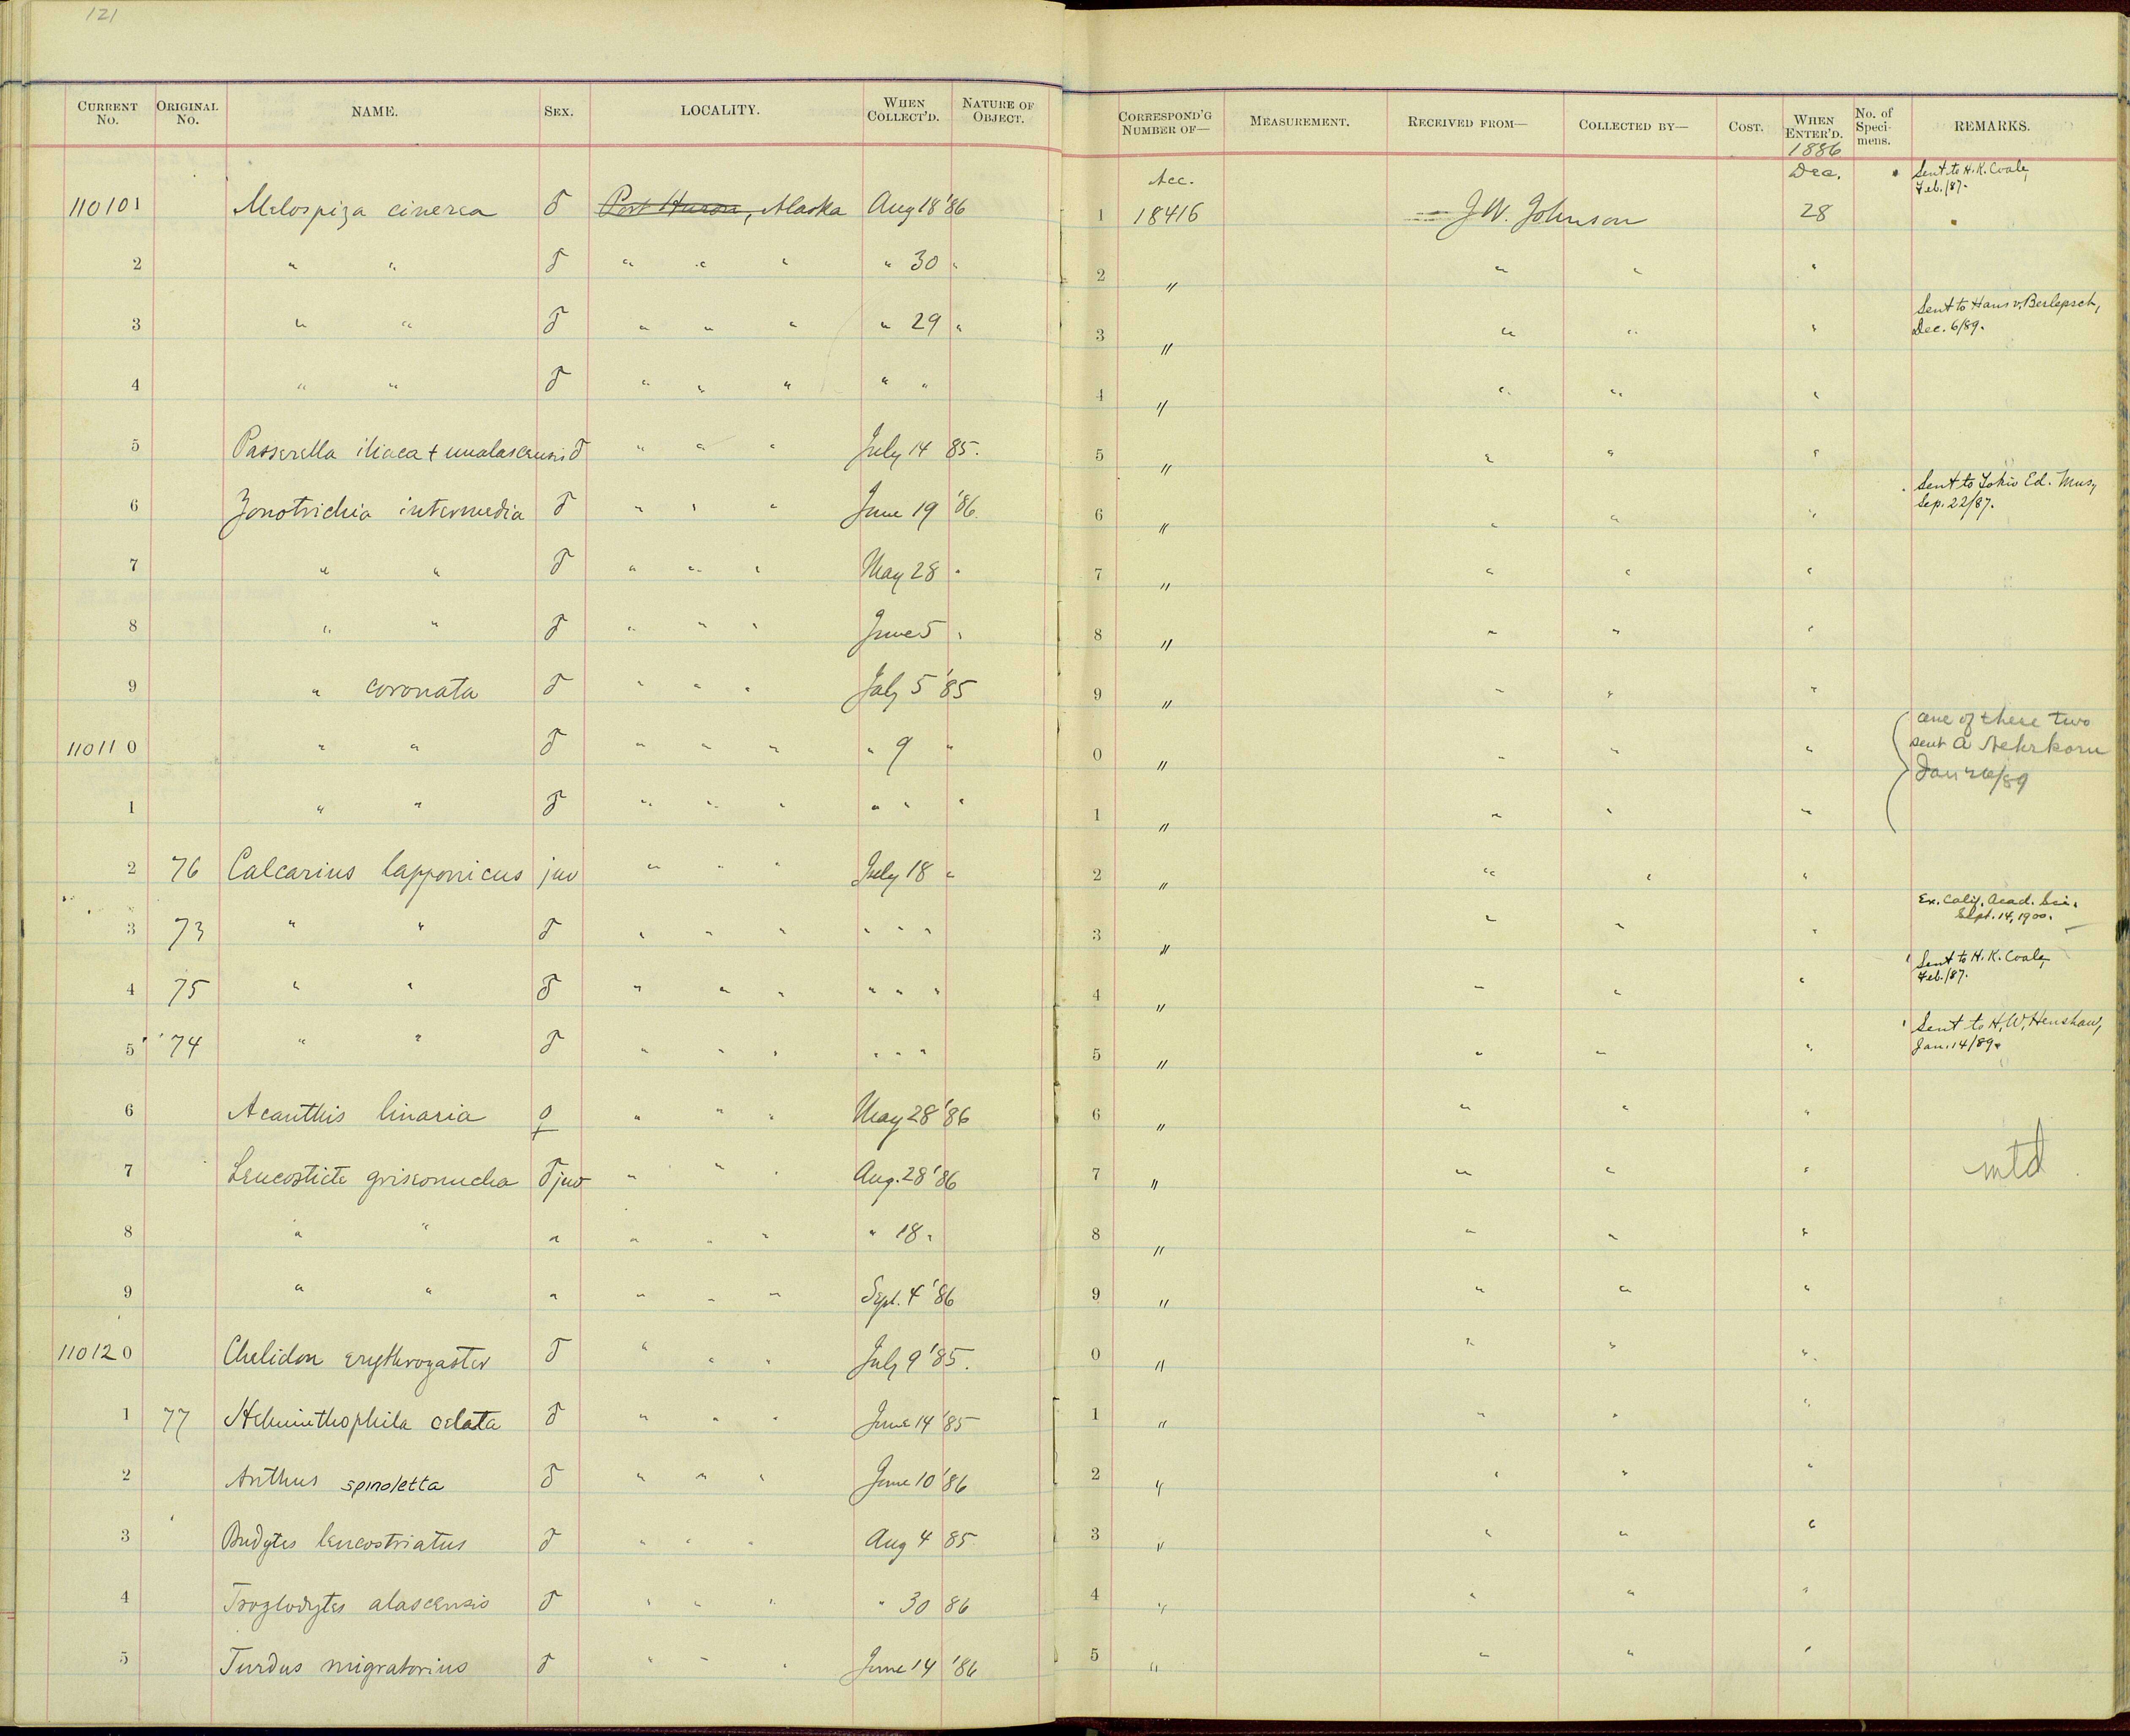 121
CURRENT No. ORIGINAL No. NAME. SEX. LOCALITY. WHEN COLLECT'D. NATURE OF OBJECT.
110101 Melospiza cinerea ♂ Port Huron, Alaska Aug 18 '86
2 " " ♂ " " " " 30 "
3 " " ♂ " " " " 29 "
4 " " ♂ " " " " "
5 Passerella iliaca + unalascensis ♂ " " " July 14 85.
6 Zonotrichia intermedia ♂ " " " June 19 '86.
7 " " ♂ " " " May 28 "
8 " " ♂ " " " June 5 "
9 " coronata ♂ " " " July 5 '85
110110 " " ♂ " " " " 9 "
1 " " ♂ " " " " " "
2 76 Calcarius lapponicus juv " " " July 18 "
3 73 " " ♂ " " " " " "
4 75 " " ♂ " " " " " "
5 74 " " ♂ " " " " " "
6 Acanthis linaria ♀ " " " May 28 '86
7 Leucosticte griseonucha ♂ juv " " " Aug. 28 '86
8 " " " " " " " 18 "
9 " " " " " " Sept. 4 '86
110120 Chelidon erythrogaster ♂ " " " July 9 '85.
1 77 Helminthophila celata ♂ " " " June 14 '85
2 Anthus spinoletta ♂ " " " June 10 '86
3 Budytes leucostriatus ♂ " " " Aug 4 85
4 Troglodytes alascensis ♂ " " " " 30 86
5 Turdus migratorius ♂ " " " June 14 '86
CORRESPOND'G NUMBER OF— MEASUREMENT. RECEIVED FROM— COLLECTED BY— COST. WHEN ENTER'D. No. of Speci-mens. REMARKS.
1886
Acc. Dec. Sent to H. K. Coale,
Feb./87.
1 18416 J. W. Johnson 28
2 " " " "
Sent to Hans v. Berlepsch,
3 " " " " Dec. 6/89.
4 " " " "
5 " " " "
Sent to Tokio Ed. Mus,
6 " " " " Sep. 22/87.
7 " " " "
8 " " " "
9 " " " "
one of these two
0 " " " " sent A Nehrkorn
Jan 26/89
1 " " " "
2 " " " "
Ex. Calif. Acad. Sci.
Sept. 14, 1900.
3 " " " "
Sent to H. K. Coale,
4 " " " " Feb./87.
Sent to H. W. Henshaw,
5 " " " " Jan. 14/89.
6 " " " "
7 " " " " mtd
8 " " " "
9 " " " "
0 " " " "
1 " " " "
2 " " " "
3 " " " "
4 " " " "
5 " " " "